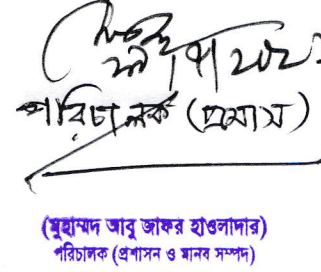 পরিচালক (প্রমাস)
(মুহাম্মদ আবু জাফর হাওলাদার)
পরিচালক (প্রশাসন ও মানব সম্পদ)